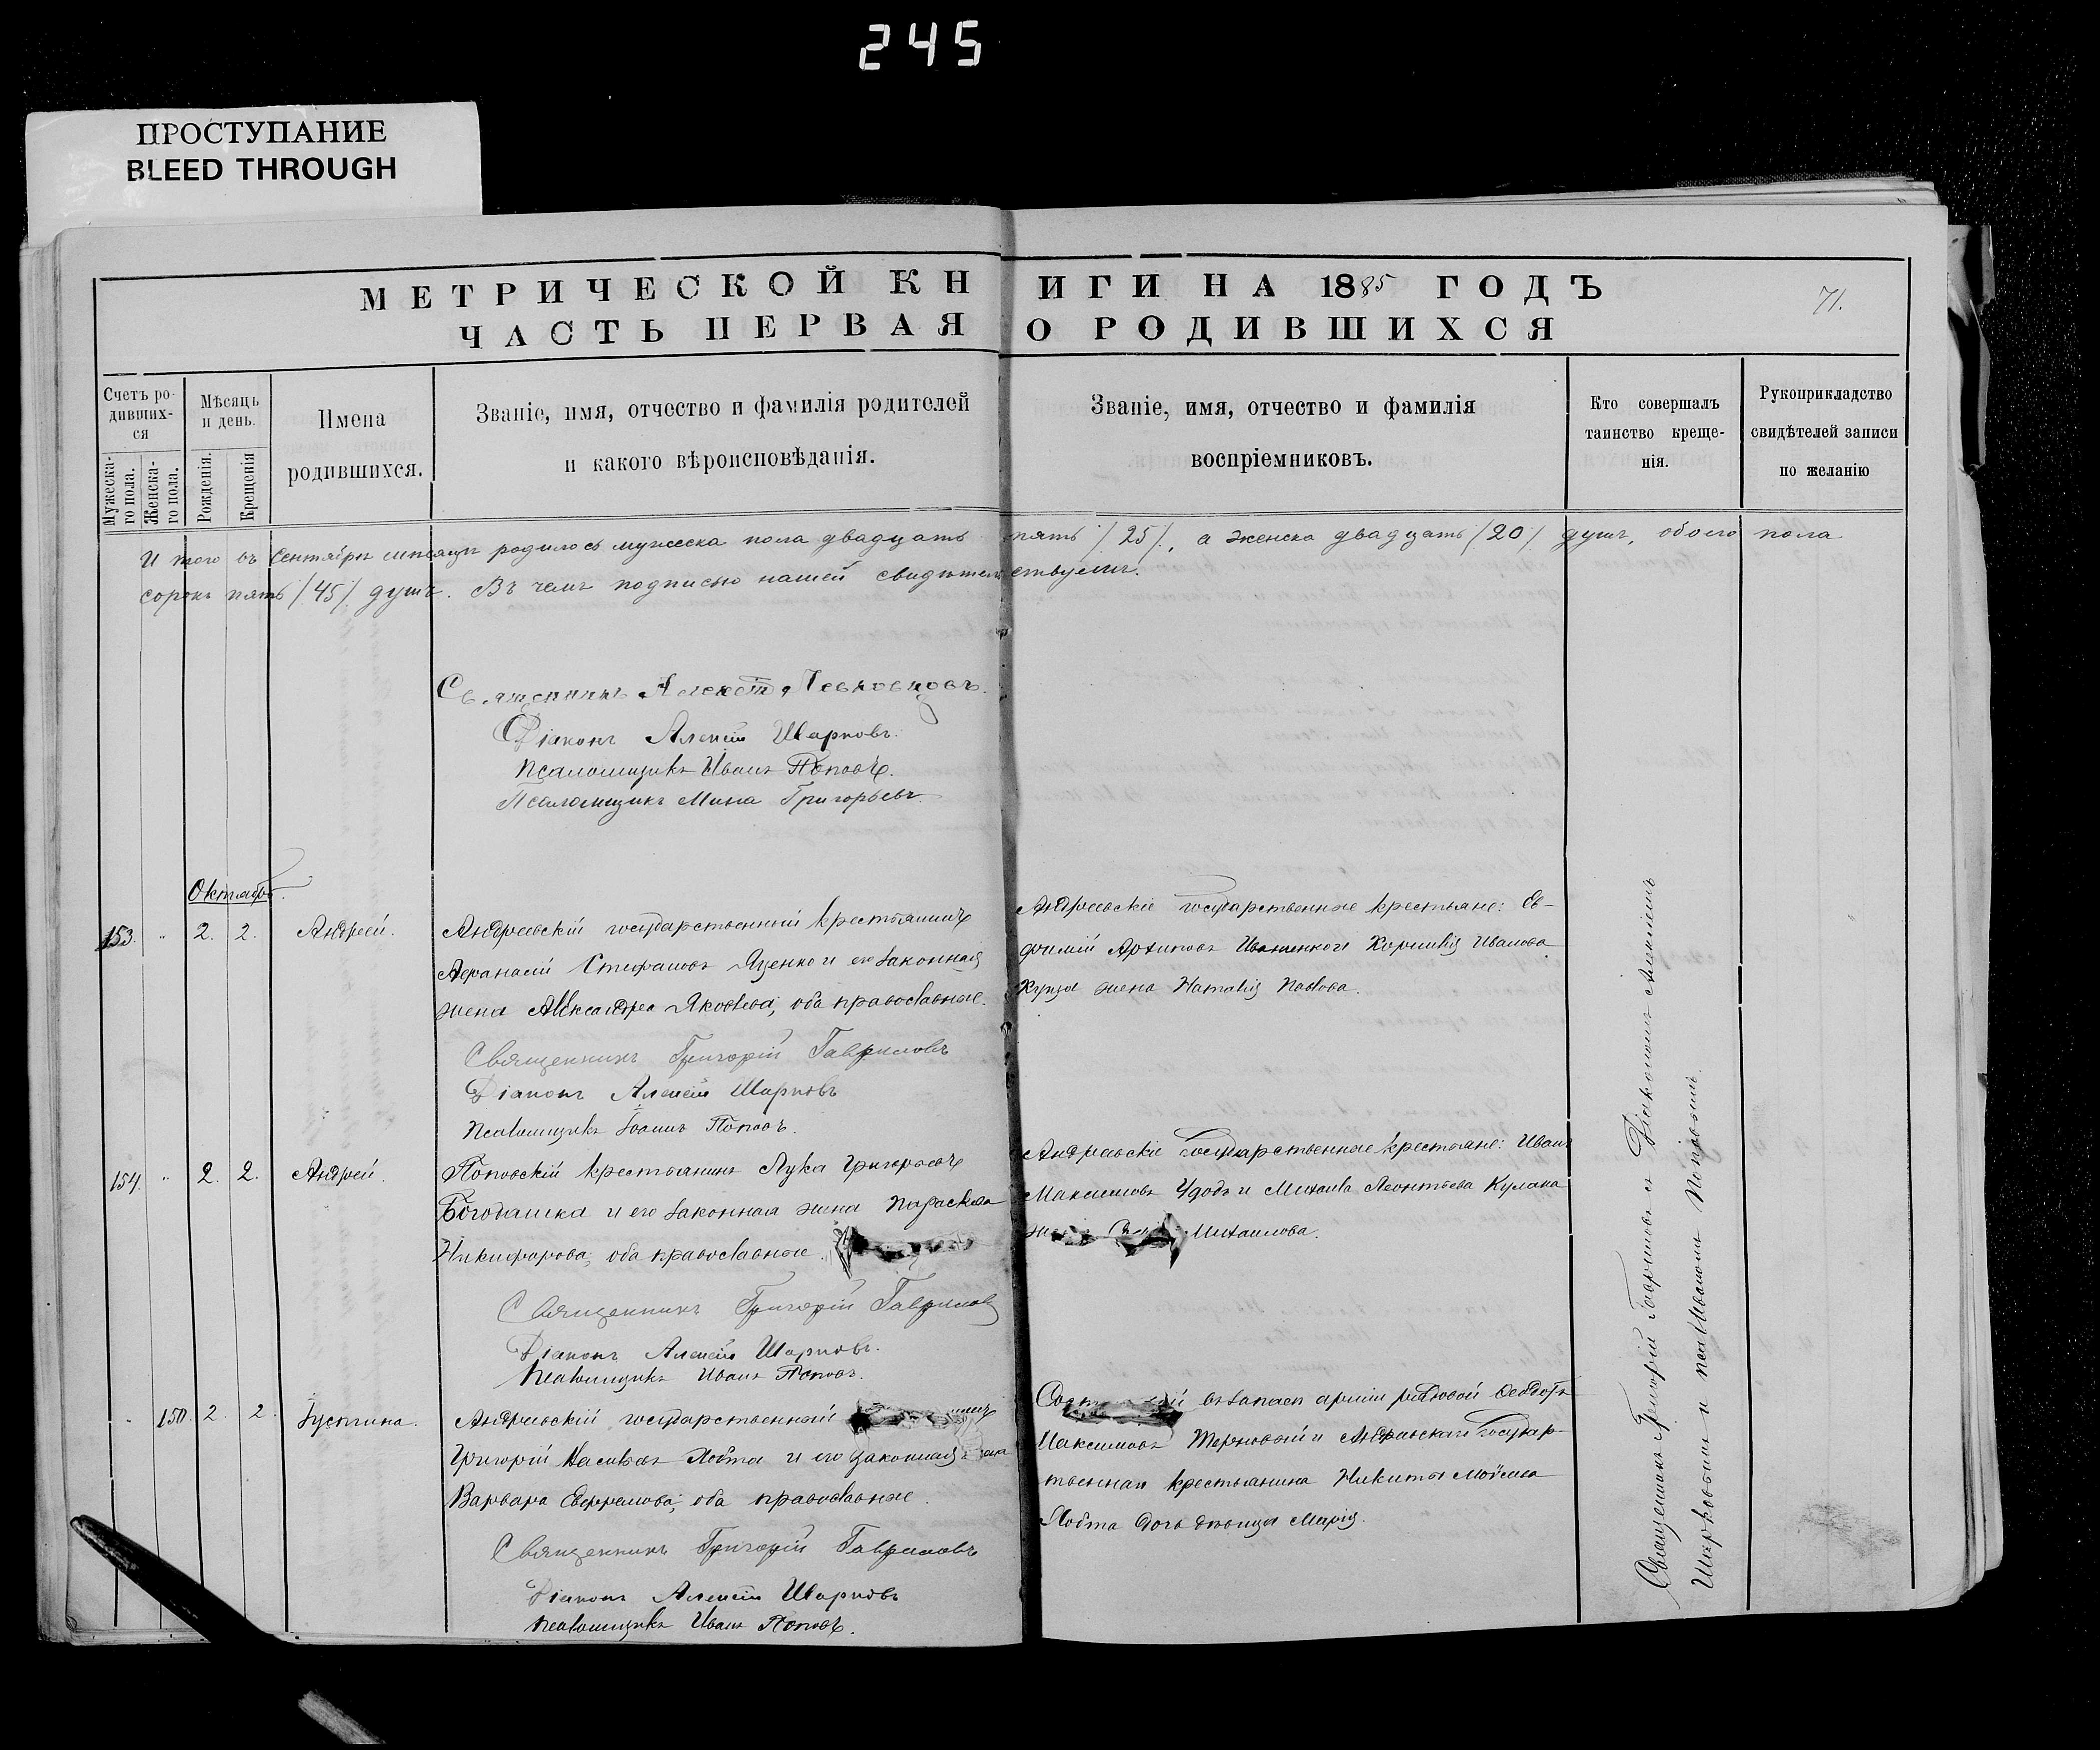 245
ПРОСТУПАНИЕ
BLEED THROUGH
МЕТРИЧЕСКОЙ КНИГИ НА 1885 ГОДЪ
71.
ЧАСТЬ ПЕРВАЯ О РОДИВШИХСЯ
Счетъ родившихся
Мужескаго пола.
Женскаго пола.
Мѣсяцъ и день.
Рожденія.
Крещенія
Имена родившихся.
Званіе, имя, отчество и фамилія родителей
и какого вѣроисповѣданія.
Званіе, имя, отчество и фамилія
воспріемниковъ.
Кто совершалъ
таинство креще-
нія.
Рукоприкладство
свидѣтелей записи
по желанію
И того въ Сентябрѣ мѣсяцѣ родилось мужеска пола двадцать пять /25/, а женска двадцать /20/ душъ, обоего пола
сорокъ пять /45/ душъ. Въ чемъ подписью нашей свидѣтельствуемъ.
Священникъ
Діаконъ Алексій Шарковъ.
Псаломщикъ Иванъ Поповъ.
Псаломщикъ Мина Григорьевъ
Октябрь.
153. " 2. 2. Андрей.
Андреевскій государственный крестьянинъ
Афанасій Стефановъ Яценко и его законная
жена Александра Яковлева, оба православные.
Священникъ Григорій Гавриловъ
Діаконъ Алексій Шарковъ
Псаломщикъ Іоаннъ Поповъ.
Андреевскіе государственные крестьяне: Ев-
фимій Архиповъ Иващенко и Корнилія Иванова
жена Наталія Павлова.
154. " 2. 2. Андрей.
Поповскій крестьянинъ Лука Григорьевъ
Богодашка и его законная жена Параскева
Никифорова, оба православные.
Священникъ Григорій Гавриловъ
Діаконъ Алексій Шарковъ.
Псаломщикъ Иванъ Поповъ.
Андреевскіе государственные крестьяне: Иванъ
Максимовъ Удодъ и Михаила Леонтьева Кулака
Михаилова.
" 150. 2. 2. Іустина.
Андреевскій государственный
Григорій Лобта и его законная жена
Варвара Ефремова, оба православные.
Священникъ Григорій Гавриловъ
Діаконъ Алексій Шарковъ
Псаломщикъ Иванъ Поповъ.
въ запасѣ арміи рядовой Ѳеодотъ
Максимовъ Терновой и Андреевскаго государ-
твеннаго крестьянина Никиты Моѵсеева
Лобта дочь дѣвица Марія.
Священникъ Григорій Гавриловъ съ Діакономъ Алексіемъ
Шарковымъ и псал Иваномъ Поповымъ.